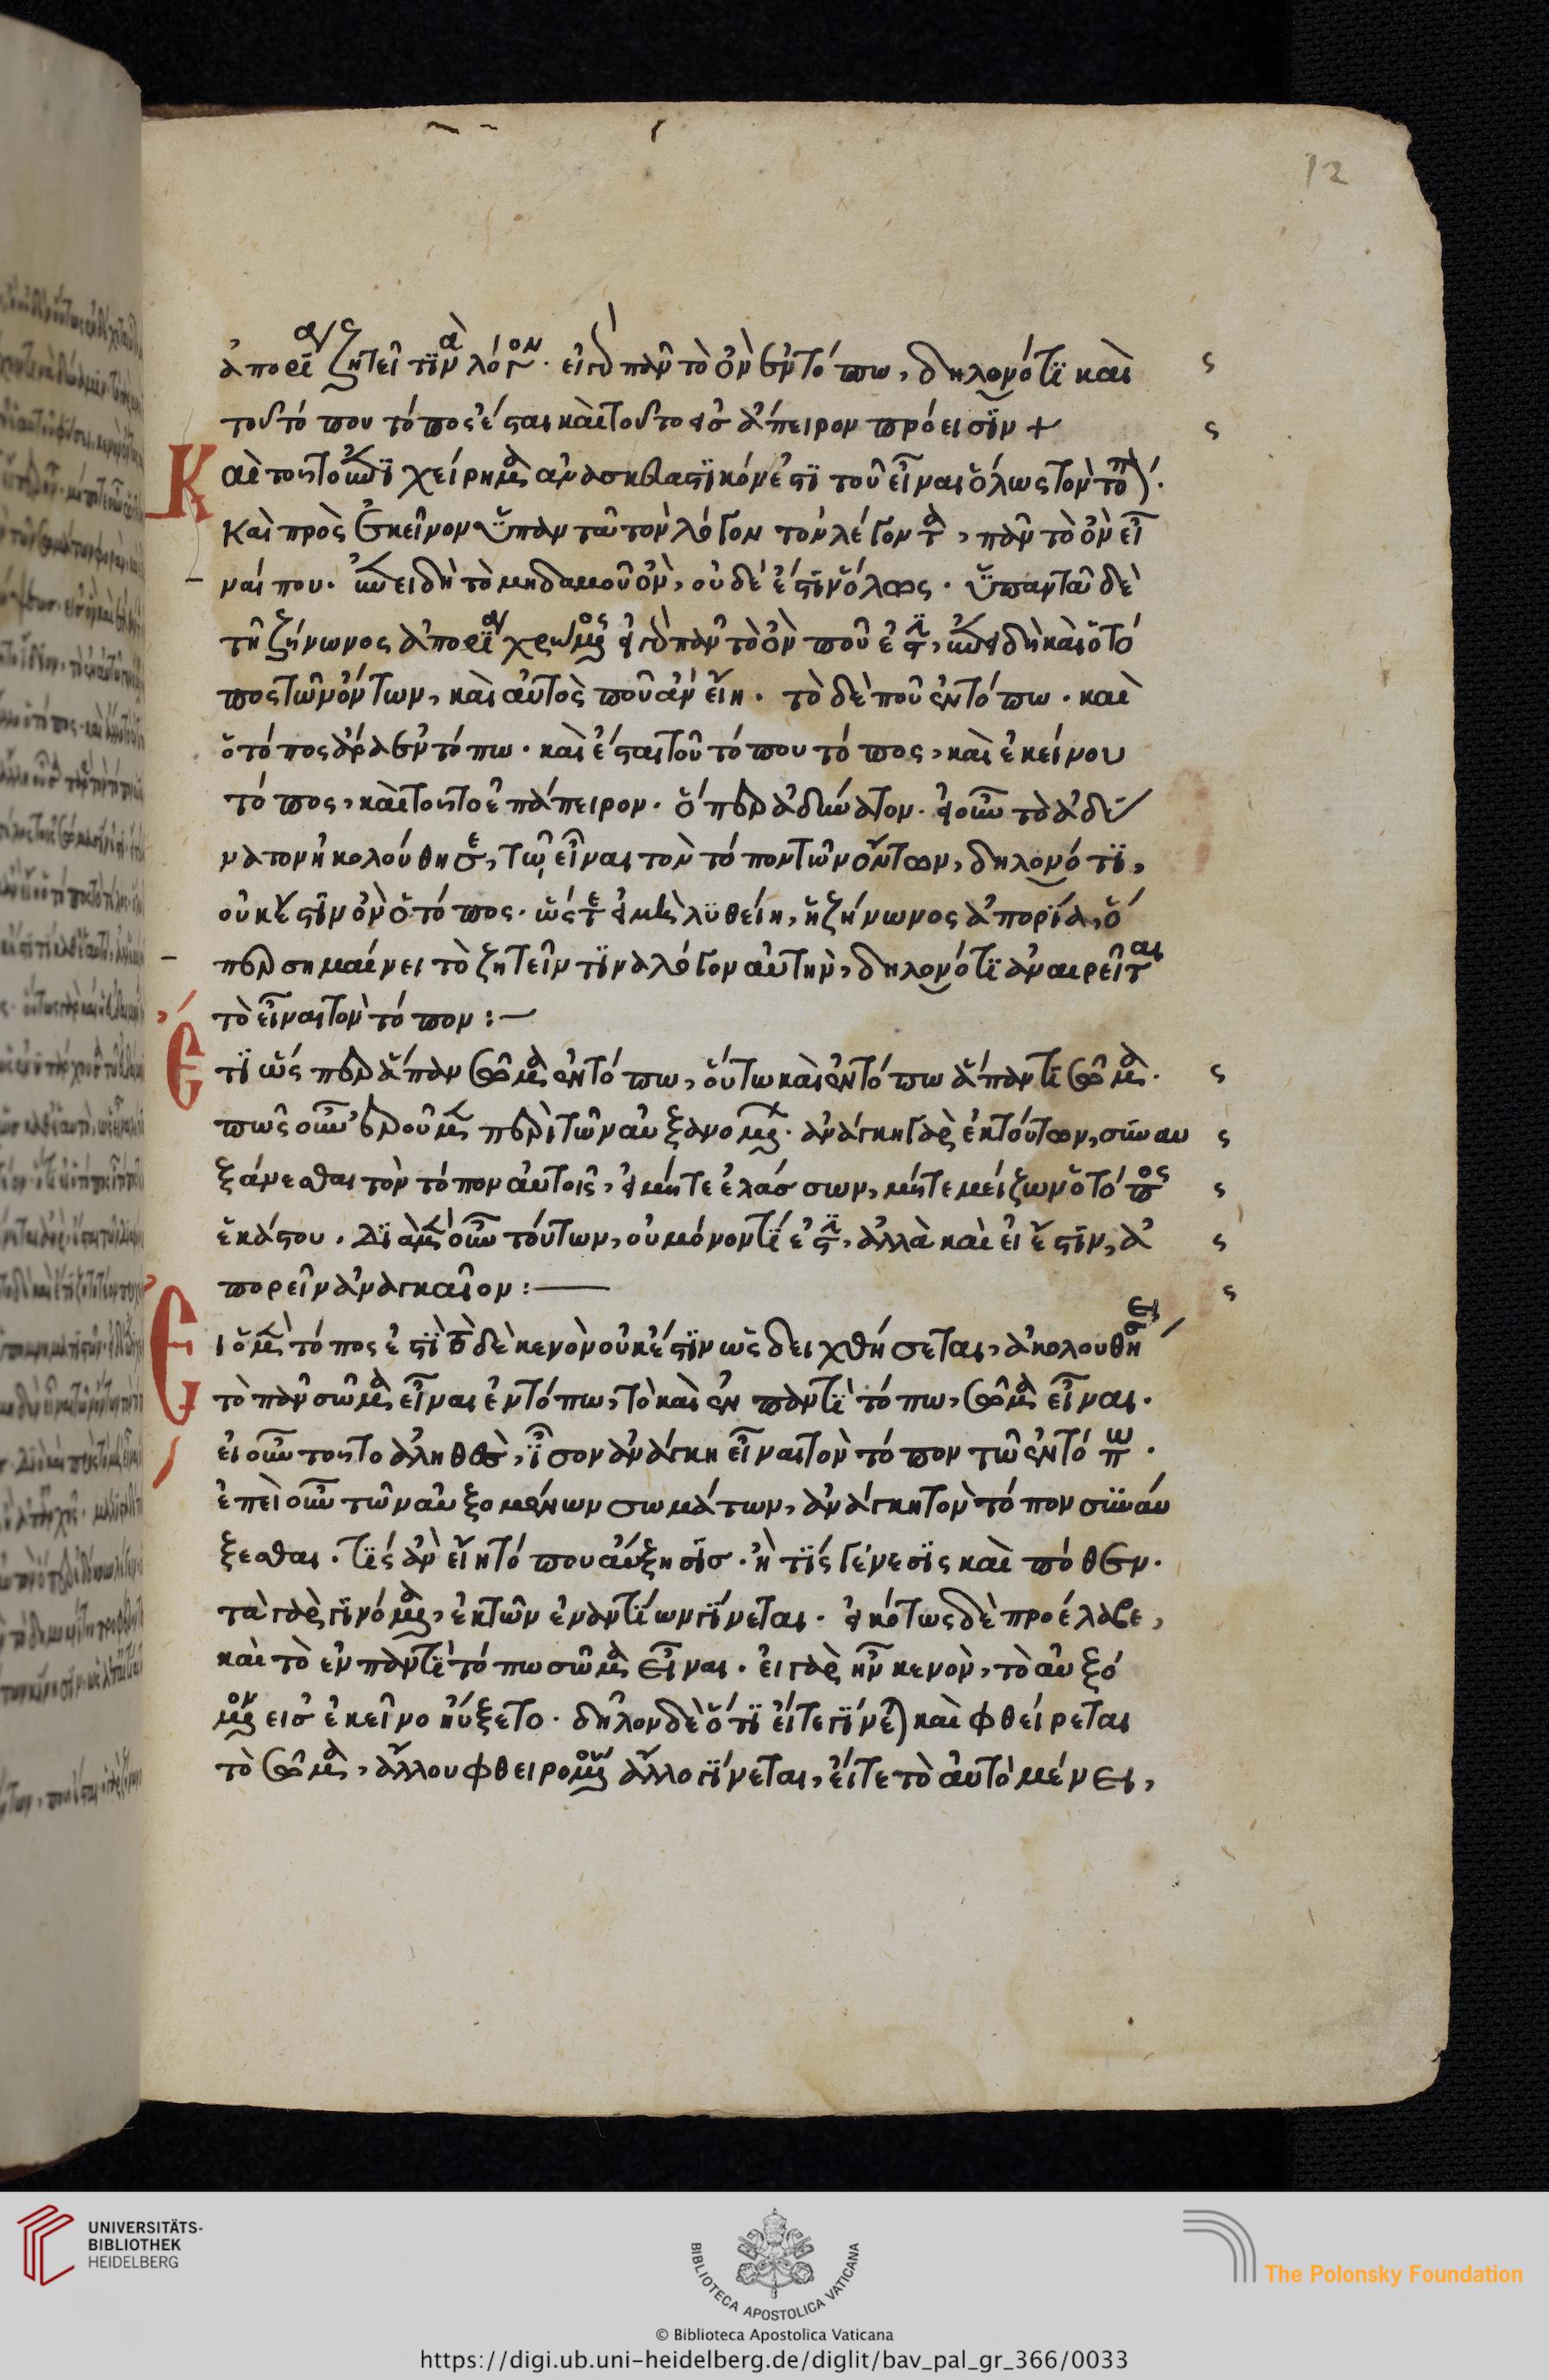 12
ἀπορία ζητεῖ τινὰ λόγον· εἰ γὰρ πᾶν τὸ ὂν ἐν τόπω, δηλονότι καὶ
τοῦ τόπου τόπος ἔσται καὶ τοῦτο εἰσ ἄπειρον πρόεισιν +
Καὶ τοῦτο τὸ ἐπιχείρημα ἀνασκευαστικόν ἐστι τοῦ εἶναι ὅλως τὸν τόπον·
Καὶ πρὸς ἐκεῖνον ὑπαντᾶ τὸν λόγον τὸν λέγοντα, πᾶν τὸ ὂν εἶ
ναί που. ἐπειδὴ τὸ μηδαμοῦ ὂν, οὐδέ ἐστιν ὅλως. ὑπαντᾶ δὲ
τῆ ζήνωνος ἀπορία χρώμενος εἰ γὰρ πᾶν τὸ ὂν ποῦ ἐστι, ἐπειδὴ καὶ ὁ τό
πος τῶν ὄντων, καὶ αὐτὸς ποῦ ἀν εἴη. τὸ δὲ ποῦ ἐν τόπω. καὶ
ὁ τόπος ἄρα ἐν τόπω. καὶ ἔσται τοῦ τόπου τόπος, καὶ ἐκείνου
τόπος, καὶ τοῦτο ἐπάπειρον. ὅπερ ἀδύνατον. εἰ οὖν τὸ ἀδύ
νατον ἠκολούθησε, τῶ εἶναι τὸν τόπον τῶν ὄντων, δηλονότι,
οὐκ ἔστιν ὂν ὁ τόπος. ὥστε εἰ μὲν λυθείη, ἡ ζήνωνος ἀπορία, ὅ
περ σημαίνει τὸ ζητεῖν τινα λόγον αὐτὴν, δηλονότι ἀναιρεῖται
τὸ εἶναι τὸν τόπον :–
Ἔτι ὥσπερ ἅπαν σῶμα ἐν τόπω, οὕτω καὶ ἐν τόπω ἅπαντι σῶμα.
πῶς οὖν ἐροῦμεν περὶ τῶν αὐξανομένων. ἀνάγκη γὰρ ἐκ τούτων, συναυ
ξάνεσθαι τὸν τόπον αὐτοῖς, εἰ μήτε ἐλάσσων, μήτε μείζων ὁ τόπος
ἑκάστου. Διὰ μὲν οὖν τούτων, οὐ μόνον τί ἐστι, ἀλλὰ καὶ εἰ ἔστιν, ἀ
πορεῖν ἀναγκαῖον :–
Εἰ ὁ μὲν τόπος ἐστὶ τὸ δὲ κενὸν οὐκ ἔστιν ὡς δειχθήσεται, ἀκολουθήσει
τὸ πᾶν σῶμα εἶναι ἐν τόπω, τὸ καὶ ἐν παντὶ τόπω, σῶμα εἶναι.
εἰ οὖν τοῦτο ἀληθὲς, ἴσον ἀνάγκη εἶναι τὸν τόπον τῶ ἐν τόπω.
ἐπεὶ οὖν τῶν αὐξομένων σωμάτων, ἀνάγκη τὸν τόπον συναύ
ξεσθαι. τίς ἀν εἴη τόπου αὔξησισ. ἢ τίς γένεσις καὶ πόθεν.
τὰ γὰρ γινόμενα, ἐκ τῶν ἐναντίων γίνεται. εἰκότως δὲ προέλαβε,
καὶ τὸ ἐν παντὶ τόπω σῶμα εἶναι. εἰ γὰρ ἦν κενὸν, τὸ αὐξό
μενον εισ ἐκεῖνο ηὔξετο. δῆλον δὲ ὅτι εἴτε γίνεται καὶ φθείρεται
τὸ σῶμα, ἄλλου φθειρομένου ἄλλο γίνεται, εἴτε τὸ αὐτὸ μένει,
UNIVERSITÄTS-
BIBLIOTHEK
HEIDELBERG
BIBLIOTECA APOSTOLICA VATICANA
The Polonsky Foundation
© Biblioteca Apostolica Vaticana
https://digi.ub.uni-heidelberg.de/diglit/bav_pal_gr_366/0033